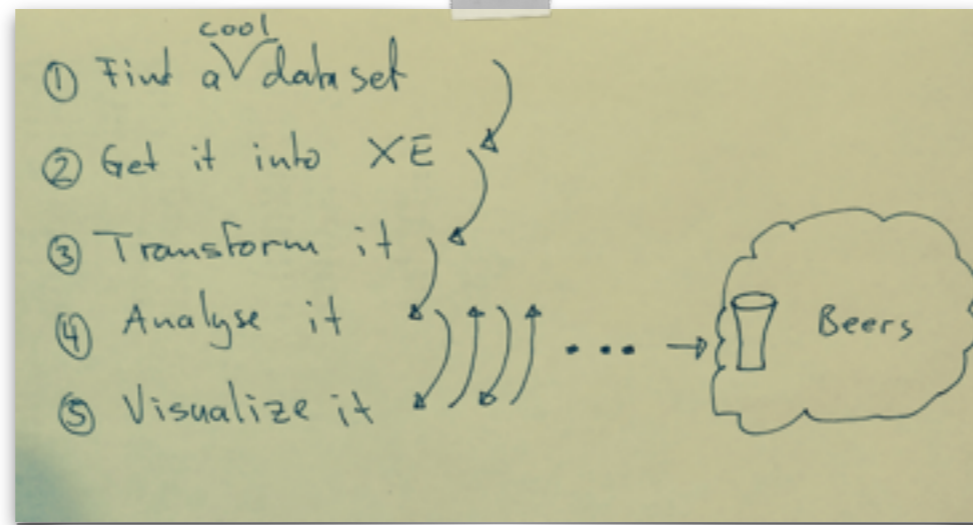 ① Find a cool dataset
② Get it into XE
③ Transform it
④ Analyse it
⑤ Visualize it
... → Beers